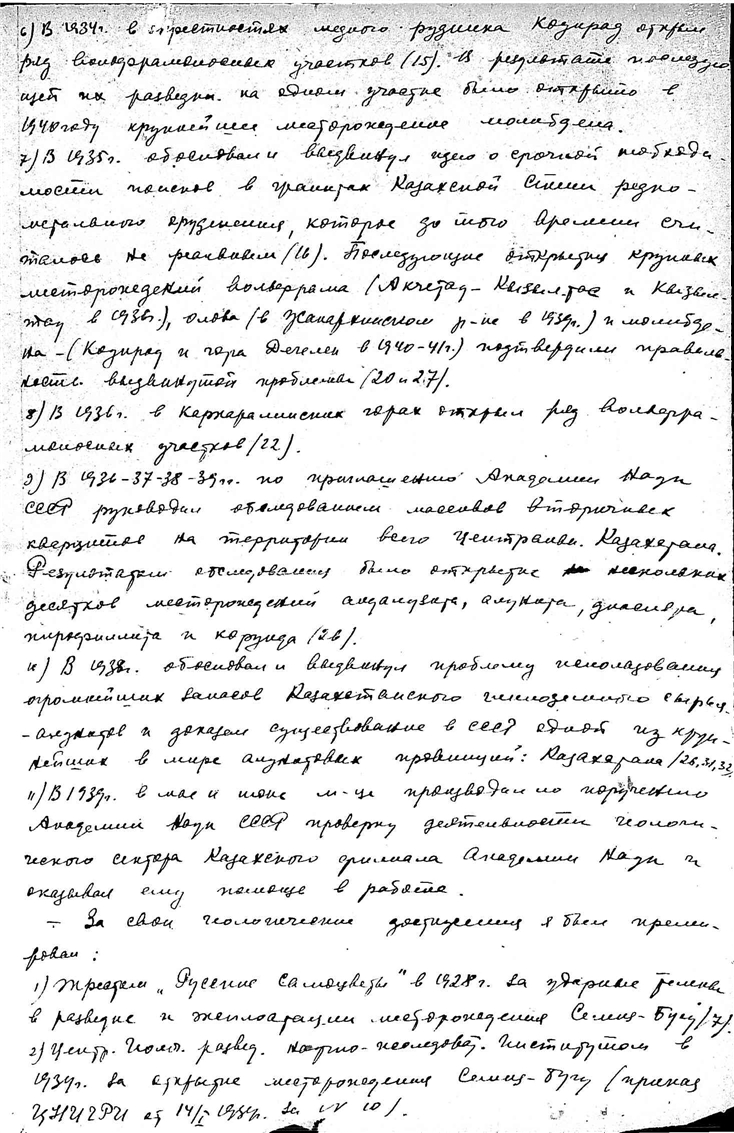 6) В 1934г. в окрестностях медного рудника Коунрад открыл
ряд вольфрамоносных участков (15). В результате последую
щей их разведки на одном участке было открыто в
1940 году крупнейшее месторождение молибдена.
7) В 1935г. обосновал и выдвинул идею о срочной необходи-
мости поисков в гранитах Казахской Степи редко-
метального оруденения, которое до того времени счи-
талось не реальным (16). Последующие открытия крупных
месторождений вольфрама (Акчетау-Кызылтас и Кызыл-
тау в 1936г.), олова (в Жанааркинском р-не в 1939г.) и молибде-
на - (Коунрад и гора Дегелен в 1940-41г.) подтвердили правиль-
ность выдвинутой проблемы (20 и 27).
8) В 1936г. в Каркаралинских горах открыл ряд вольфра-
моносных участков (22).
9) В 1936-37-38-39гг. по приглашению Академии Наук
СССР руководил обследованием массивов вторичных
кварцитов на территории всего Центральн. Казахстана.
Результатом обследования было открытие нескольких
десятков месторождений андалузита, алунита, диаспора,
пирофиллита и корунда (26).
10) В 1938г. обосновал и выдвинул проблему использования
огромнейших запасов Казахстанского глиноземного сырья-
-алунитов и доказал существование в СССР одной из круп-
нейших в мире алунитовых провинций: Казахстана (26,31,32
11) В 1939г. в мае и июне м-це производил по поручению
Академии Наук СССР проверку деятельности геологи-
ческого сектора Казахского филиала Академии Наук и
оказывал ему помощь в работе.
- За свои геологические достижения я был преми-
рован:
1) Трестом "Русские Самоцветы" в 1928г. за ударные темпы
в разведке и эксплоатации месторождения Семиз-Бугу (7).
2) Центр. Геол. развед. научно-исследоват. Институтом в
1934г. за открытие месторождения Семиз-Бугу (приказ
ЦНИГРИ от 14/I 1934г. за № 10).